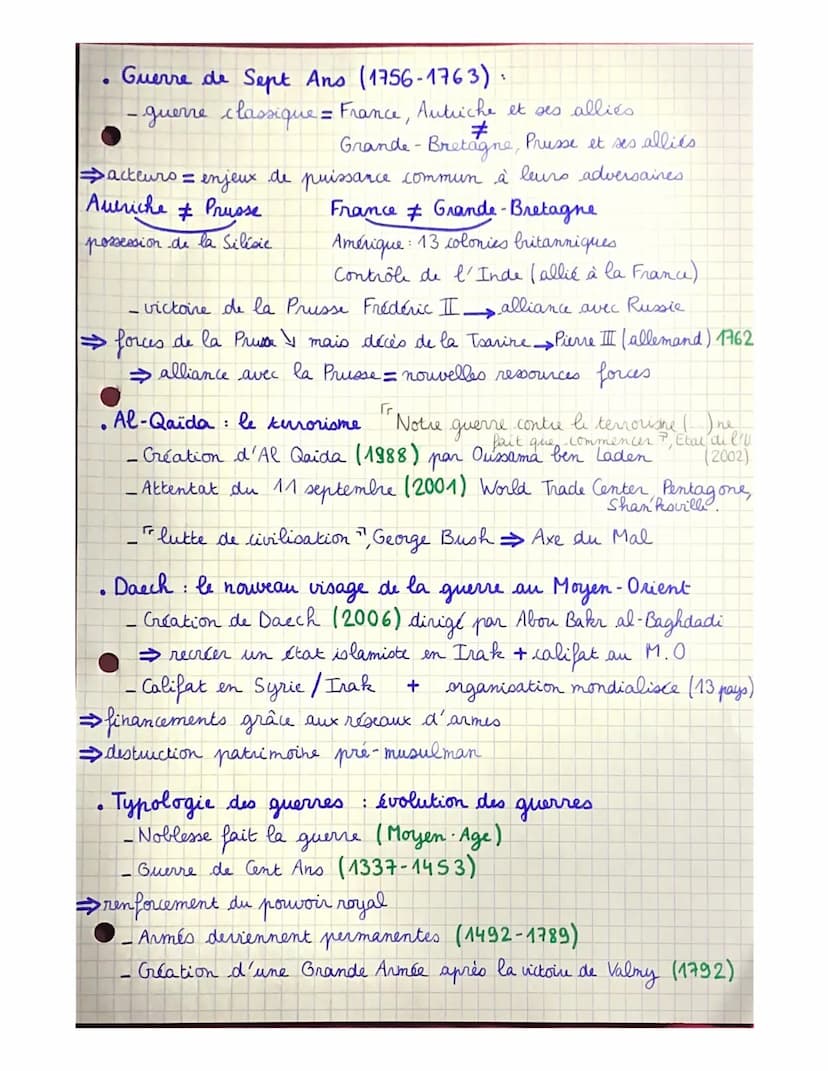 . Guerre de Sept Ans (1756-1763) :
- guerre classique = France, Autriche et ses alliés
≠
Grande-Bretagne, Prusse et ses alliés
⇒ acteurs = enjeux de puissance commun à leurs adversaires
Autriche ≠ Prusse France ≠ Grande-Bretagne
possession de la Silésie Amérique : 13 colonies britanniques
Contrôle de l'Inde (allié à la France)
- victoire de la Prusse Frédéric II → alliance avec Russie
⇒ forces de la Prusse ↘ mais décès de la Tsarine → Pierre III (allemand) 1762
⇒ alliance avec la Prusse = nouvelles ressources forces
. Al-Qaïda : le terrorisme "Notre guerre contre le terrorisme (...) ne
fait que commencer", Etat de l'U
- Création d'Al Qaida (1988) par Oussama ben Laden (2002)
- Attentat du 11 septembre (2001) World Trade Center, Pentagone,
Shan'ksville.
- "lutte de civilisation", George Bush ⇒ Axe du Mal
. Daech : le nouveau visage de la guerre au Moyen-Orient
- Création de Daech (2006) dirigé par Abou Bakr al-Baghdadi
⇒ recréer un état islamiste en Irak + califat au M.O
- Califat en Syrie / Irak + organisation mondialisée (13 pays)
⇒ financements grâce aux réseaux d'armes
⇒ destruction patrimoine pré-musulman
. Typologie des guerres : évolution des guerres
- Noblesse fait la guerre (Moyen-Age)
- Guerre de Cent Ans (1337-1453)
⇒ renforcement du pouvoir royal
- Armés deviennent permanentes (1492-1789)
- Création d'une Grande Armée après la victoire de Valmy (1792)